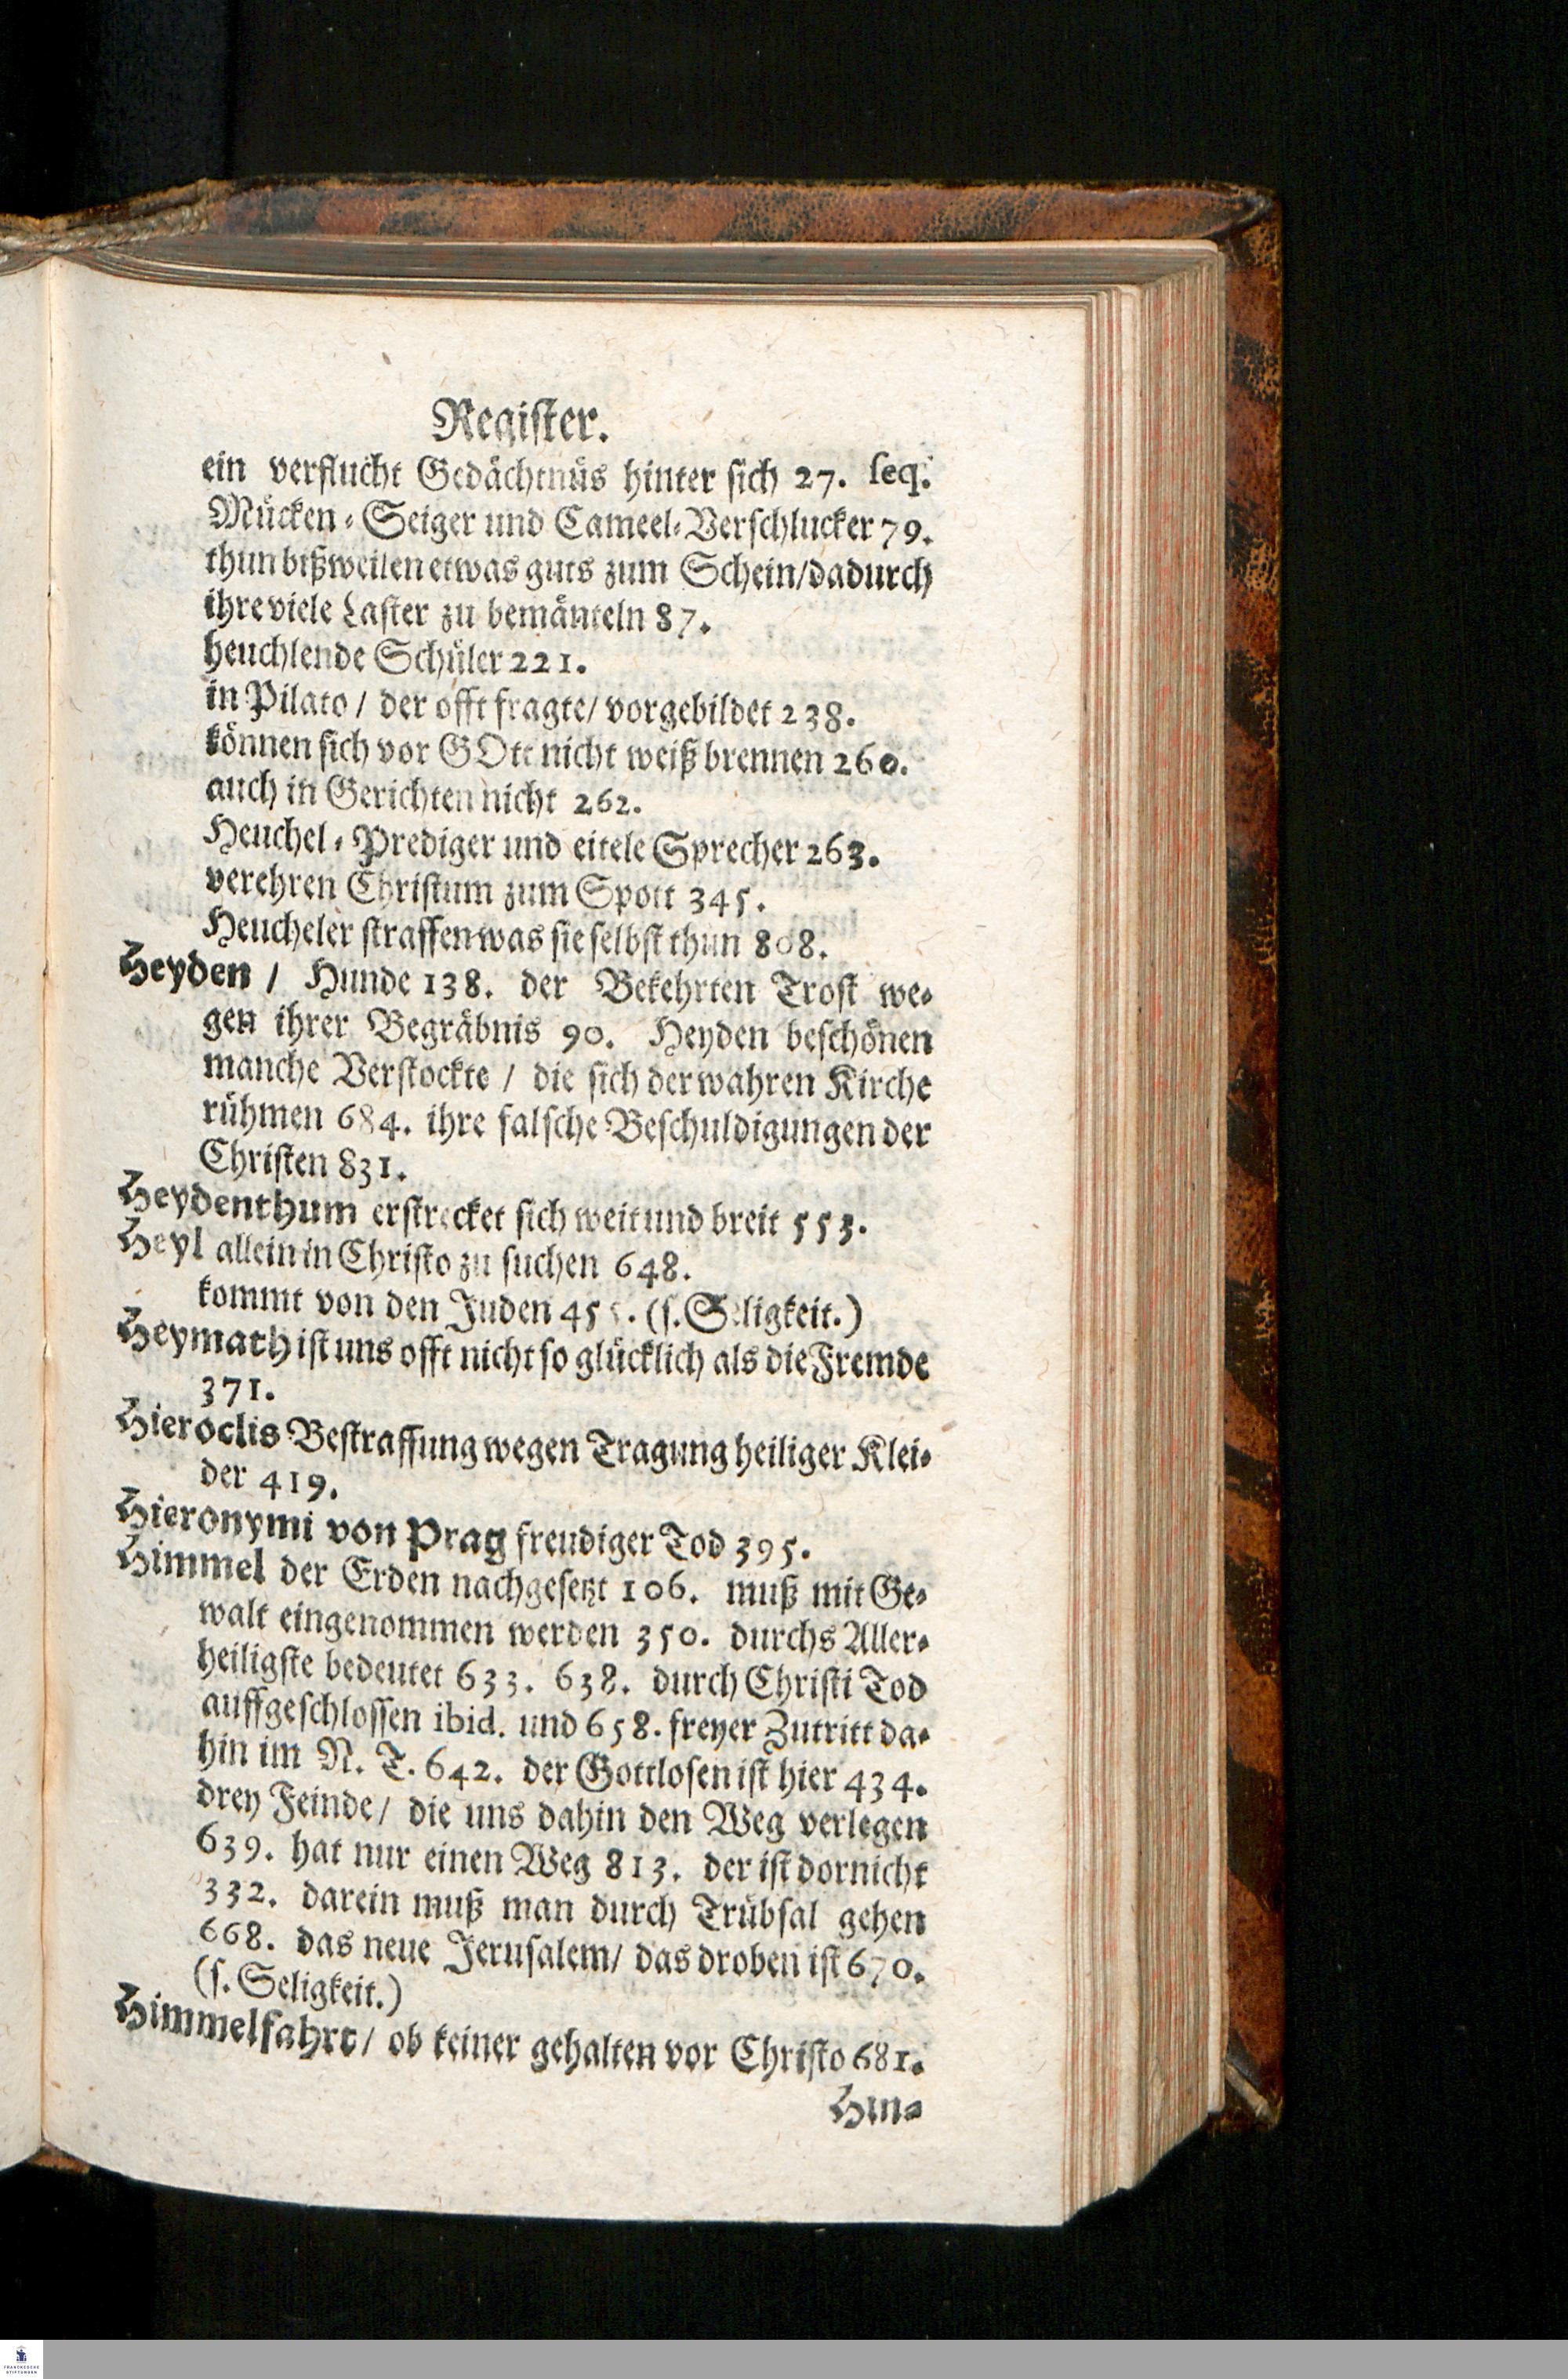 Register.
ein verflucht Gedächtnüs hinter sich 27. seq.
Mücken-Seiger und Cameel-Verschlucker 79.
thun bißweilen etwas guts zum Schein/dadurch
ihre viele Laster zu bemänteln 87.
heuchlende Schüler 221.
in Pilato / der offt fragte/ vorgebildet 238.
können sich vor GOtt nicht weiß brennen 260.
auch in Gerichten nicht 262.
Heuchel-Prediger und eitele Sprecher 263.
verehren Christum zum Spott 345.
Heucheler straffen was sie selbst thun 808.
Heyden / Hunde 138. der Bekehrten Trost we-
gen ihrer Begräbnis 90. Heyden beschönen
manche Verstockte / die sich der wahren Kirche
rühmen 684. ihre falsche Beschuldigungen der
Christen 831.
Heydenthum erstrecket sich weit und breit 553.
Heyl allein in Christo zu suchen 648.
kommt von den Juden (s. Seligkeit.)
Heymath ist uns offt nicht so glücklich als die Fremde
371.
Hieroclis Bestraffung wegen Tragung heiliger Klei-
der 419.
Hieronymi von Prag freudiger Tod 395.
Himmel der Erden nachgesetzt 106. muß mit Ge-
walt eingenommen werden 350. durchs Aller-
heiligste bedeutet 633. 638. durch Christi Tod
auffgeschlossen ibid. und 658. freyer Zutritt da-
hin im N. T. 642. der Gottlosen ist hier 434.
drey Feinde/ die uns dahin den Weg verlegen
639. hat nur einen Weg 813. der ist dornicht
332. darein muß man durch Trübsal gehen
668. das neue Jerusalem/ das droben ist 670.
(s. Seligkeit.)
Himmelfahrt/ ob keiner gehalten vor Christo 681.
Hin-
FRANCKESCHE
STIFTUNGEN